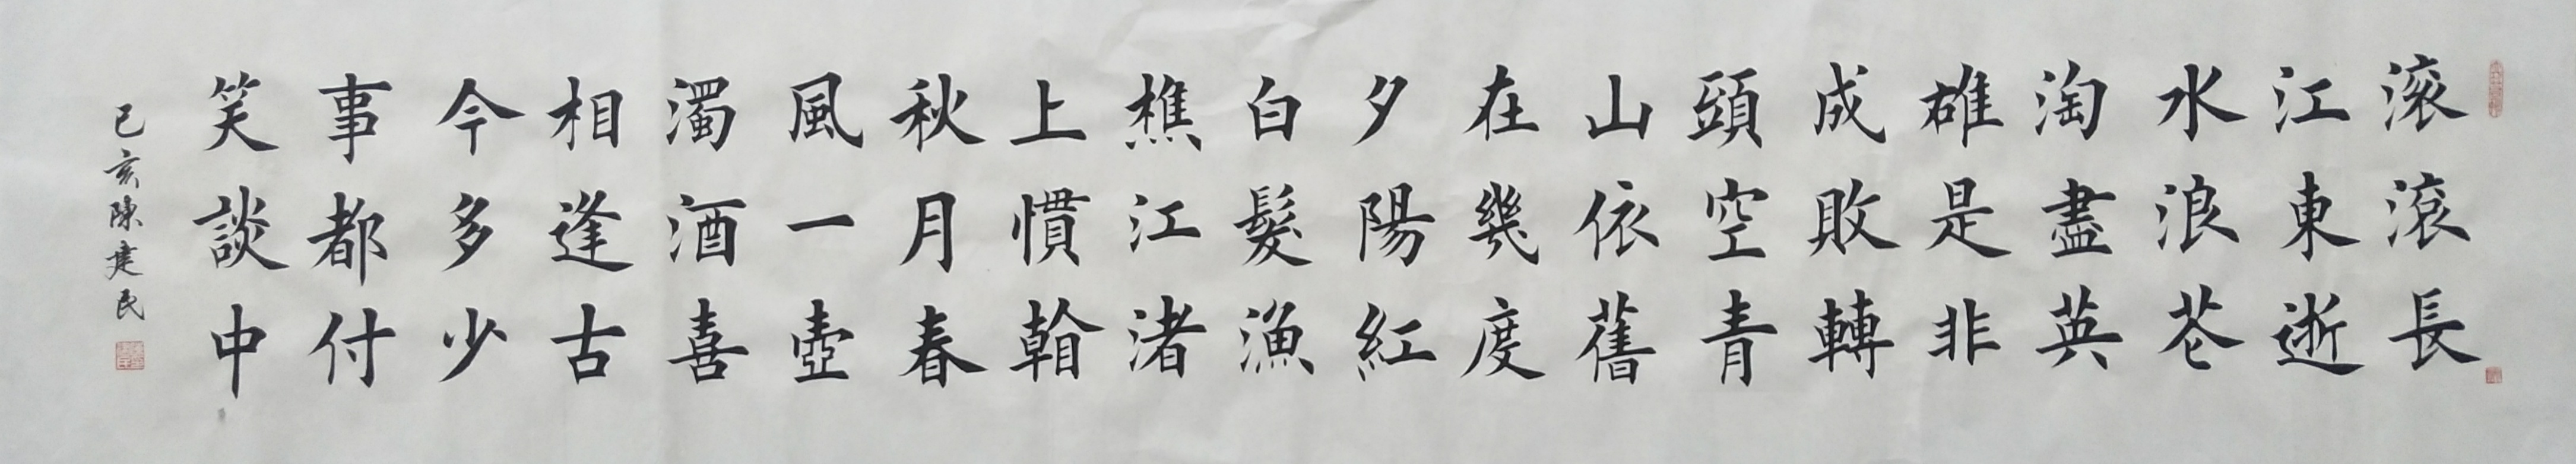 滾滾長
江東逝
水浪花
淘盡英
雄是非
成敗轉
頭空青
山依舊
在幾度
夕陽紅
白髮漁
樵江渚
上慣看
秋月春
風一壺
濁酒喜
相逢古
今多少
事都付
笑談中
己亥陳建民